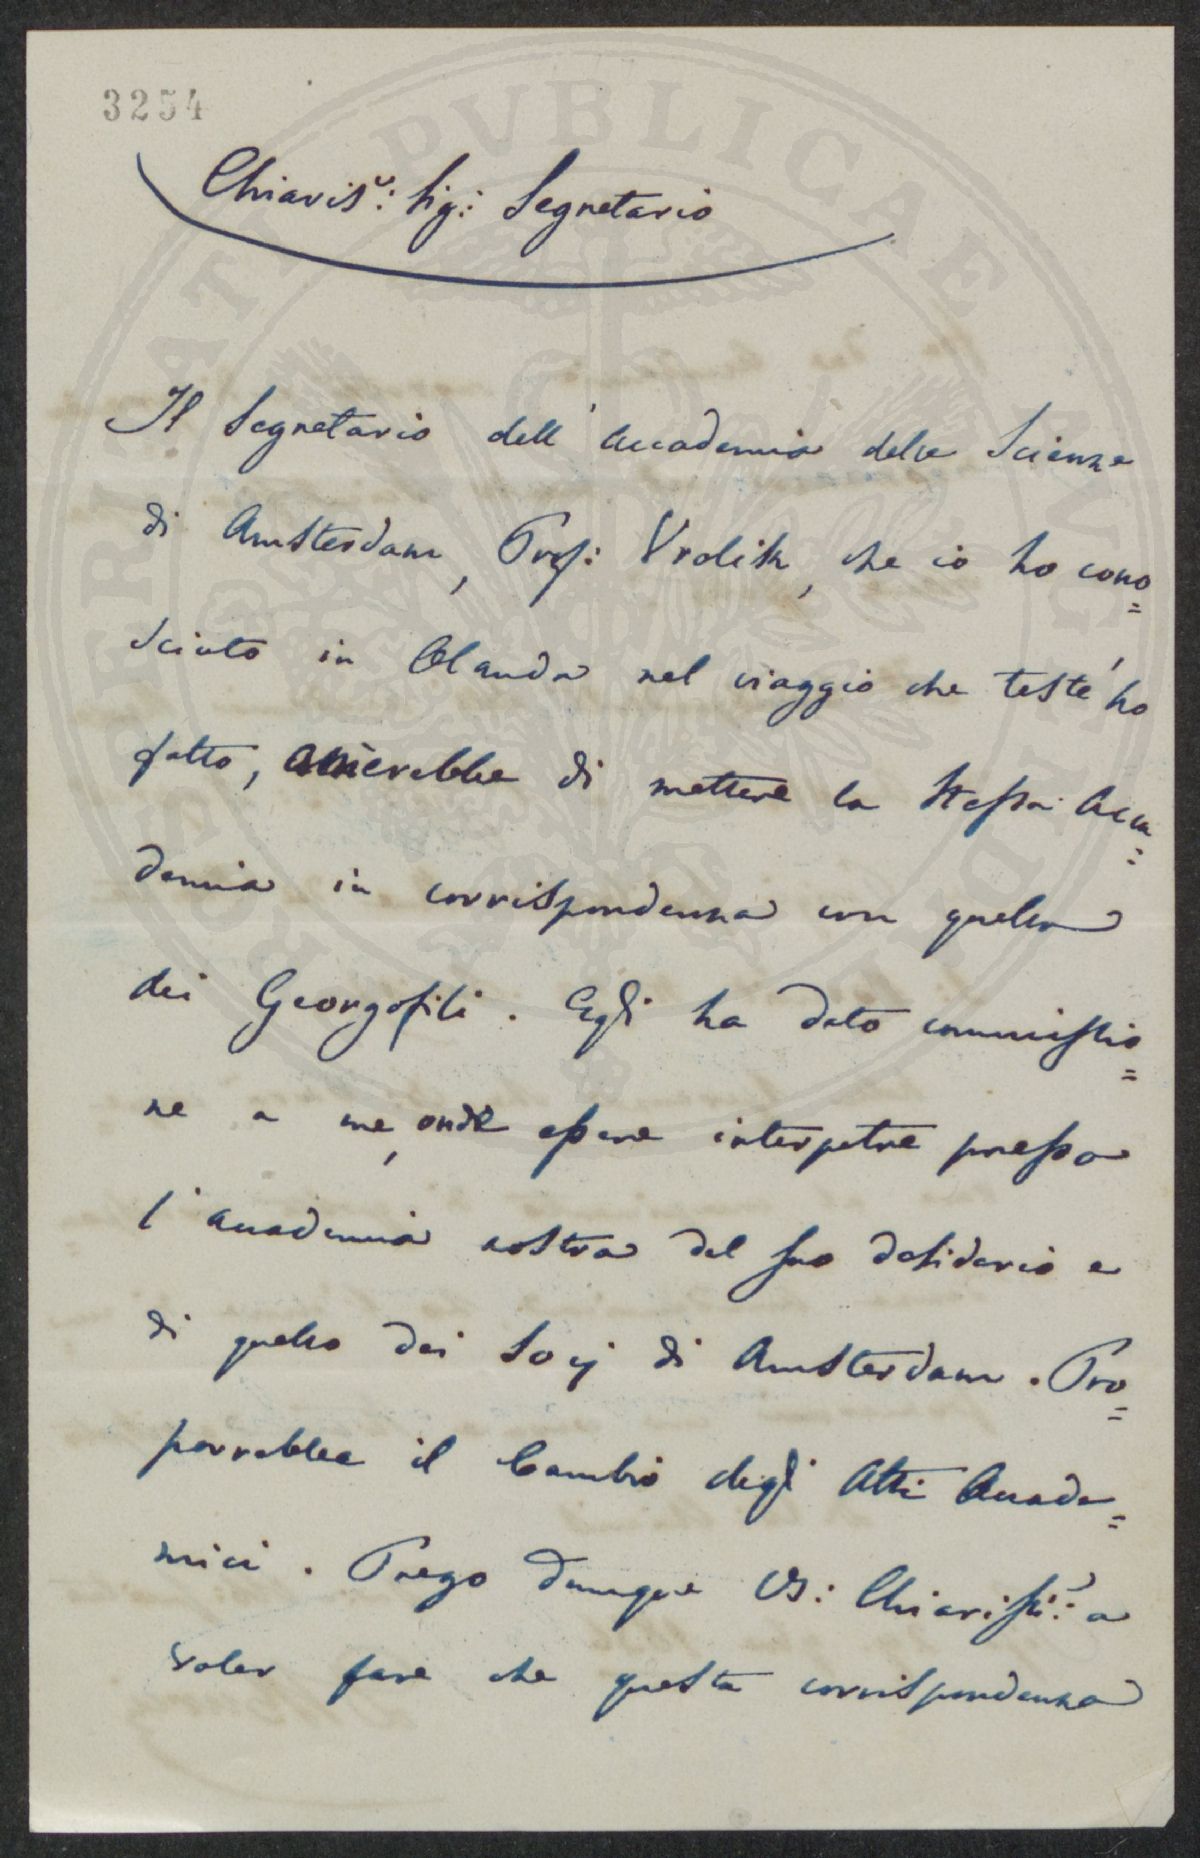 3254
Chiaris.: Sig: Segretario
Il Segretario dell'Accademia delle Scienze
di Amsterdam, Prof: Vrolik, che io ho cono=
sciuto in Olanda nel viaggio che testé ho
fatto, amerebbe di mettere la stessa Acca=
demia in corrispondenza con quella
dei Georgofili. Egli ha dato commissio=
ne a me, onde essere interpetre presso
l'accademia nostra del suo desiderio e
di quello dei Socj di Amsterdam. Pro=
porrebbe il Cambio degli Atti Accade=
mici. Prego dunque VS: Chiariss.: a
voler fare che questa corrispondenza
PERI·ATI PVBLICAE